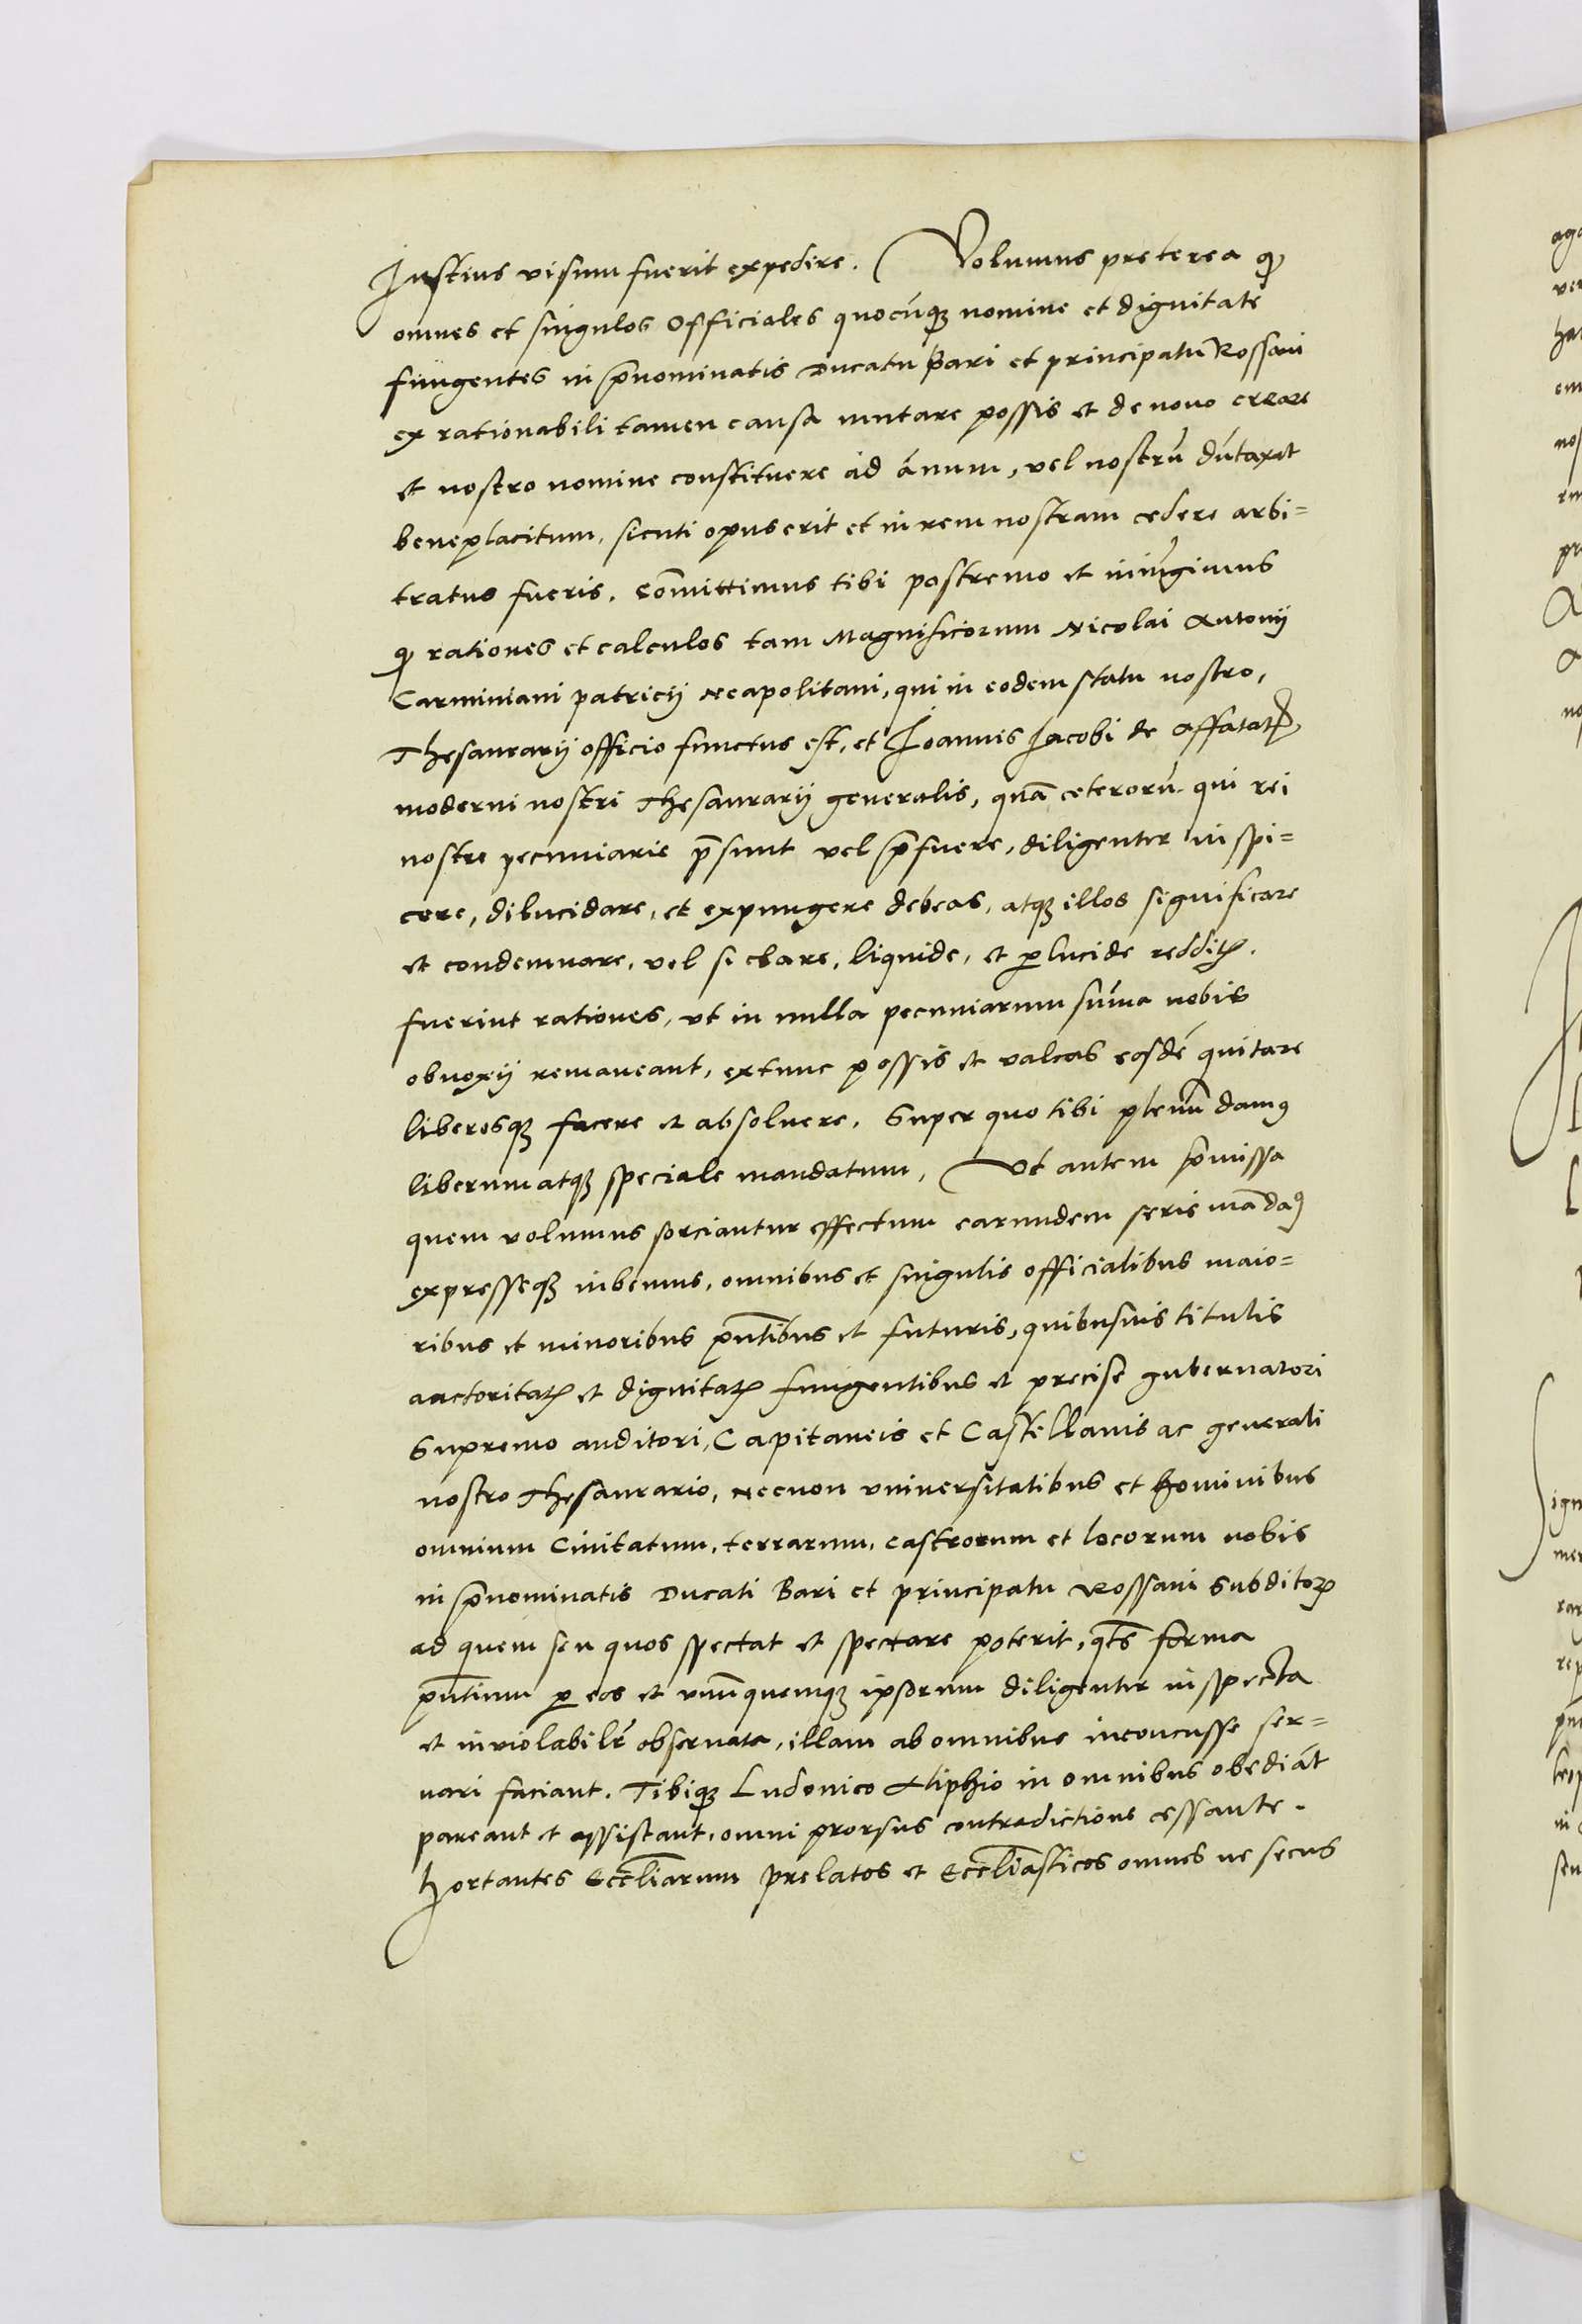 Iustius visum fuerit expedire. Volumus preterea ꝙ
omnes et singulos officiales quocũqꝫ nomine et dignitate
fungentes in p̃nominatis Ducatu Bari et principatu Rossani
ex rationabili tamen causa mutare possis et de novo creare
et nostro nomine constituere ad ãnum, vel nostrũ dũtaxat
beneplacitum, sicuti opus erit et in rem nostram cedere arbi=
tratus fueris. Cõmittimus tibi postremo et iniũgimus
ꝙ rationes et calculos tam Magnificorum Nicolai Antonij
Carminiani patricij Neapolitani, qui in eodem statu nostro,
Thesaurarij officio functus est, et Ioannis Iacobi de Affatatꝭ
moderni nostri Thesaurarij generalis, quã ceterorũ qui rei
nostre pecuniarie p̃sunt vel p̃fuere, diligenter inspi=
cere, dilucidare, et expungere debeas, atqꝫ illos significare
et condemnare, vel si clare, liquide, et ꝑlucide redditꝭ.
fuerint rationes, ut in nulla pecuniarum sum̃a nobis
obnoxij remaneant, extunc possis et valeas eosdẽ quitare
liberosqꝫ facere et absoluere. Super quo tibi plenũ damꝰ
liberum atqꝫ speciale mandatum, Ut autem p̃missa
quem volumus sorciantur effectum earundem serie mãdamꝰ
expresseqꝫ iubemus, omnibus et singulis officialibus maio=
ribus et minoribus pñtibus et futuris, quibusuis titulis
auctoritatꝭ et dignitatꝭ fungentibus et precise gubernatori
Supremo auditori, Capitaneis et Castellanis ac generali
nostro Thesaurario, Necnon universitatibus et hominibus
omnium Ciuitatum, terrarum, castrorum et locorum nobis
in p̃nominatis Ducati Bari et principatu Rossani subditoꝝ
ad quem seu quos spectat et spectare poterit, qt̃s forma
pñtium ꝑ eos et unũquemqꝫ ipsorum diligenter inspecta
et inviolabilr̃ obseruata, illam ab omnibus inconcusse ser=
uari faciant. Tibiqꝫ Ludouico Aliphio in omnibus obediãt
pareant et assistant, omni prorsus contradictione cessante.
hortantes Eccl̃iarum prelatos et Eccl̃iasticos omnes ne secus